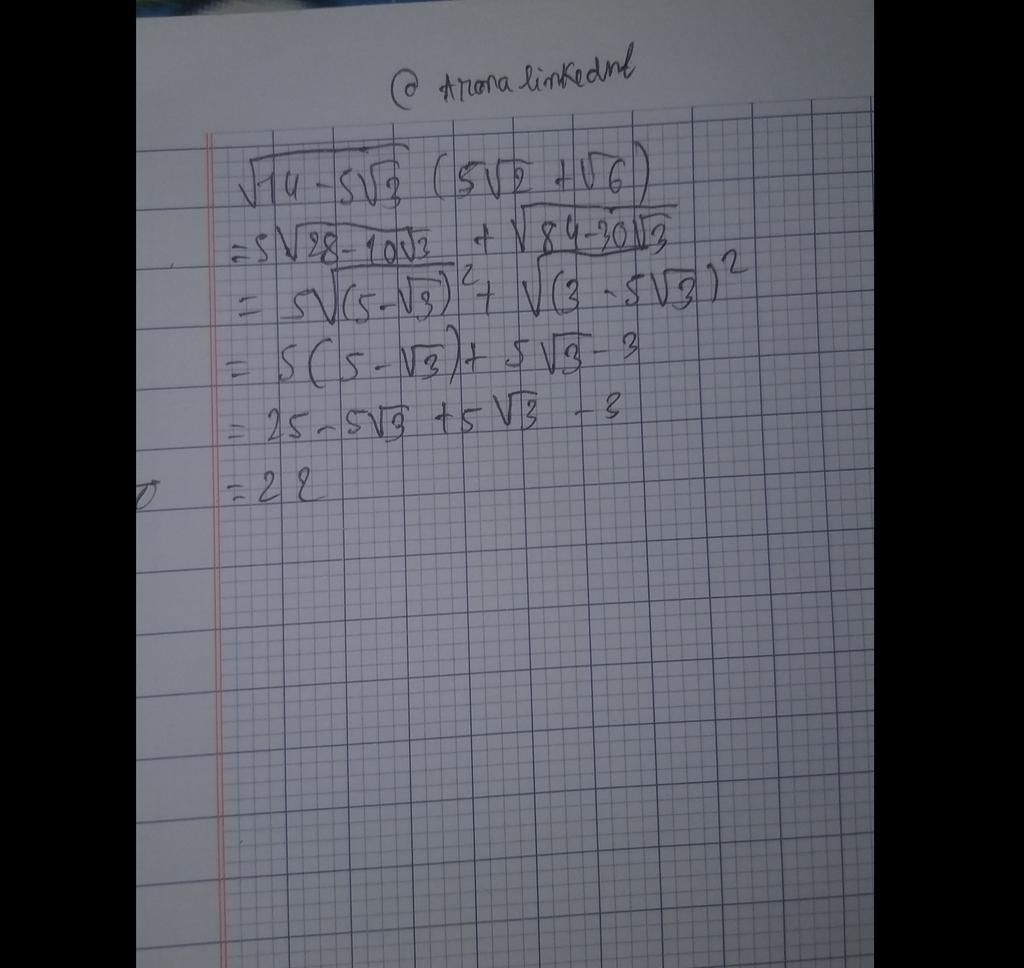 @ Arona linkednl
√14 - 5√3 (5√2 + √6)
= 5√28 - 10√3 + √84 - 30√3
= 5√(5 - √3)² + √(3 - 5√3)²
= 5(5 - √3) + 5√3 - 3
= 25 - 5√3 + 5√3 - 3
= 22